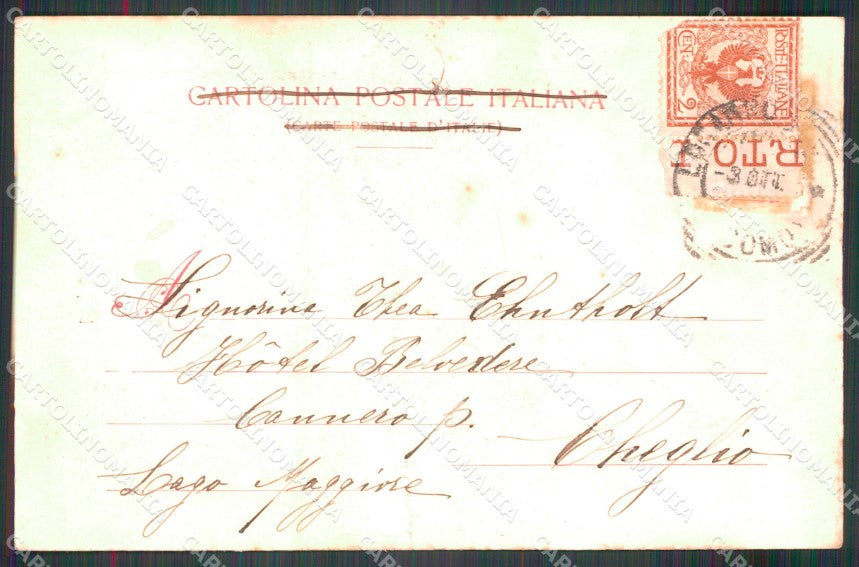 CARTOLINA POSTALE ITALIANA
(CARTE POSTALE D'ITALIE)
POSTE ITALIANE
CEN. 2
RTO
-3 OTT.
COMO
A
Signorina Thea Ehntholt
Hôtel Belvedere
Cannero p. Oheglio
Lago Maggiore
CARTOLINOMANIA